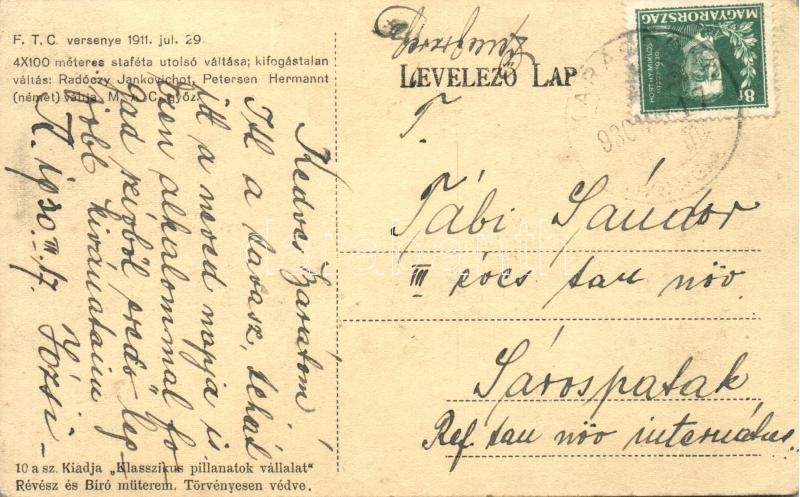 F. T. C. versenye 1911. jul. 29.
4X100 méteres staféta utolsó váltása; kifogástalan
váltás: Radóczy Jankovichot, Petersen Hermannt
(német) váltja. M. A. C. győz.
LEVELEZŐ LAP
MAGYARORSZÁG
HORTHY MIKLÓS
8f
T.
Tábi Sándor
III
tan növ
Sárospatak
Ref tan növ internátus
Kedves barátom
Itt a tavasz, tehát
itt a neved napja is
ezen alkalommal fo-
gad szívből eredő leg-
jobb kívánataim
1930. III. 17. Józsi
10 a sz. Kiadja „Klasszikus pillanatok vállalat"
Révész és Bíró műterem. Törvényesen védve.
darabanth